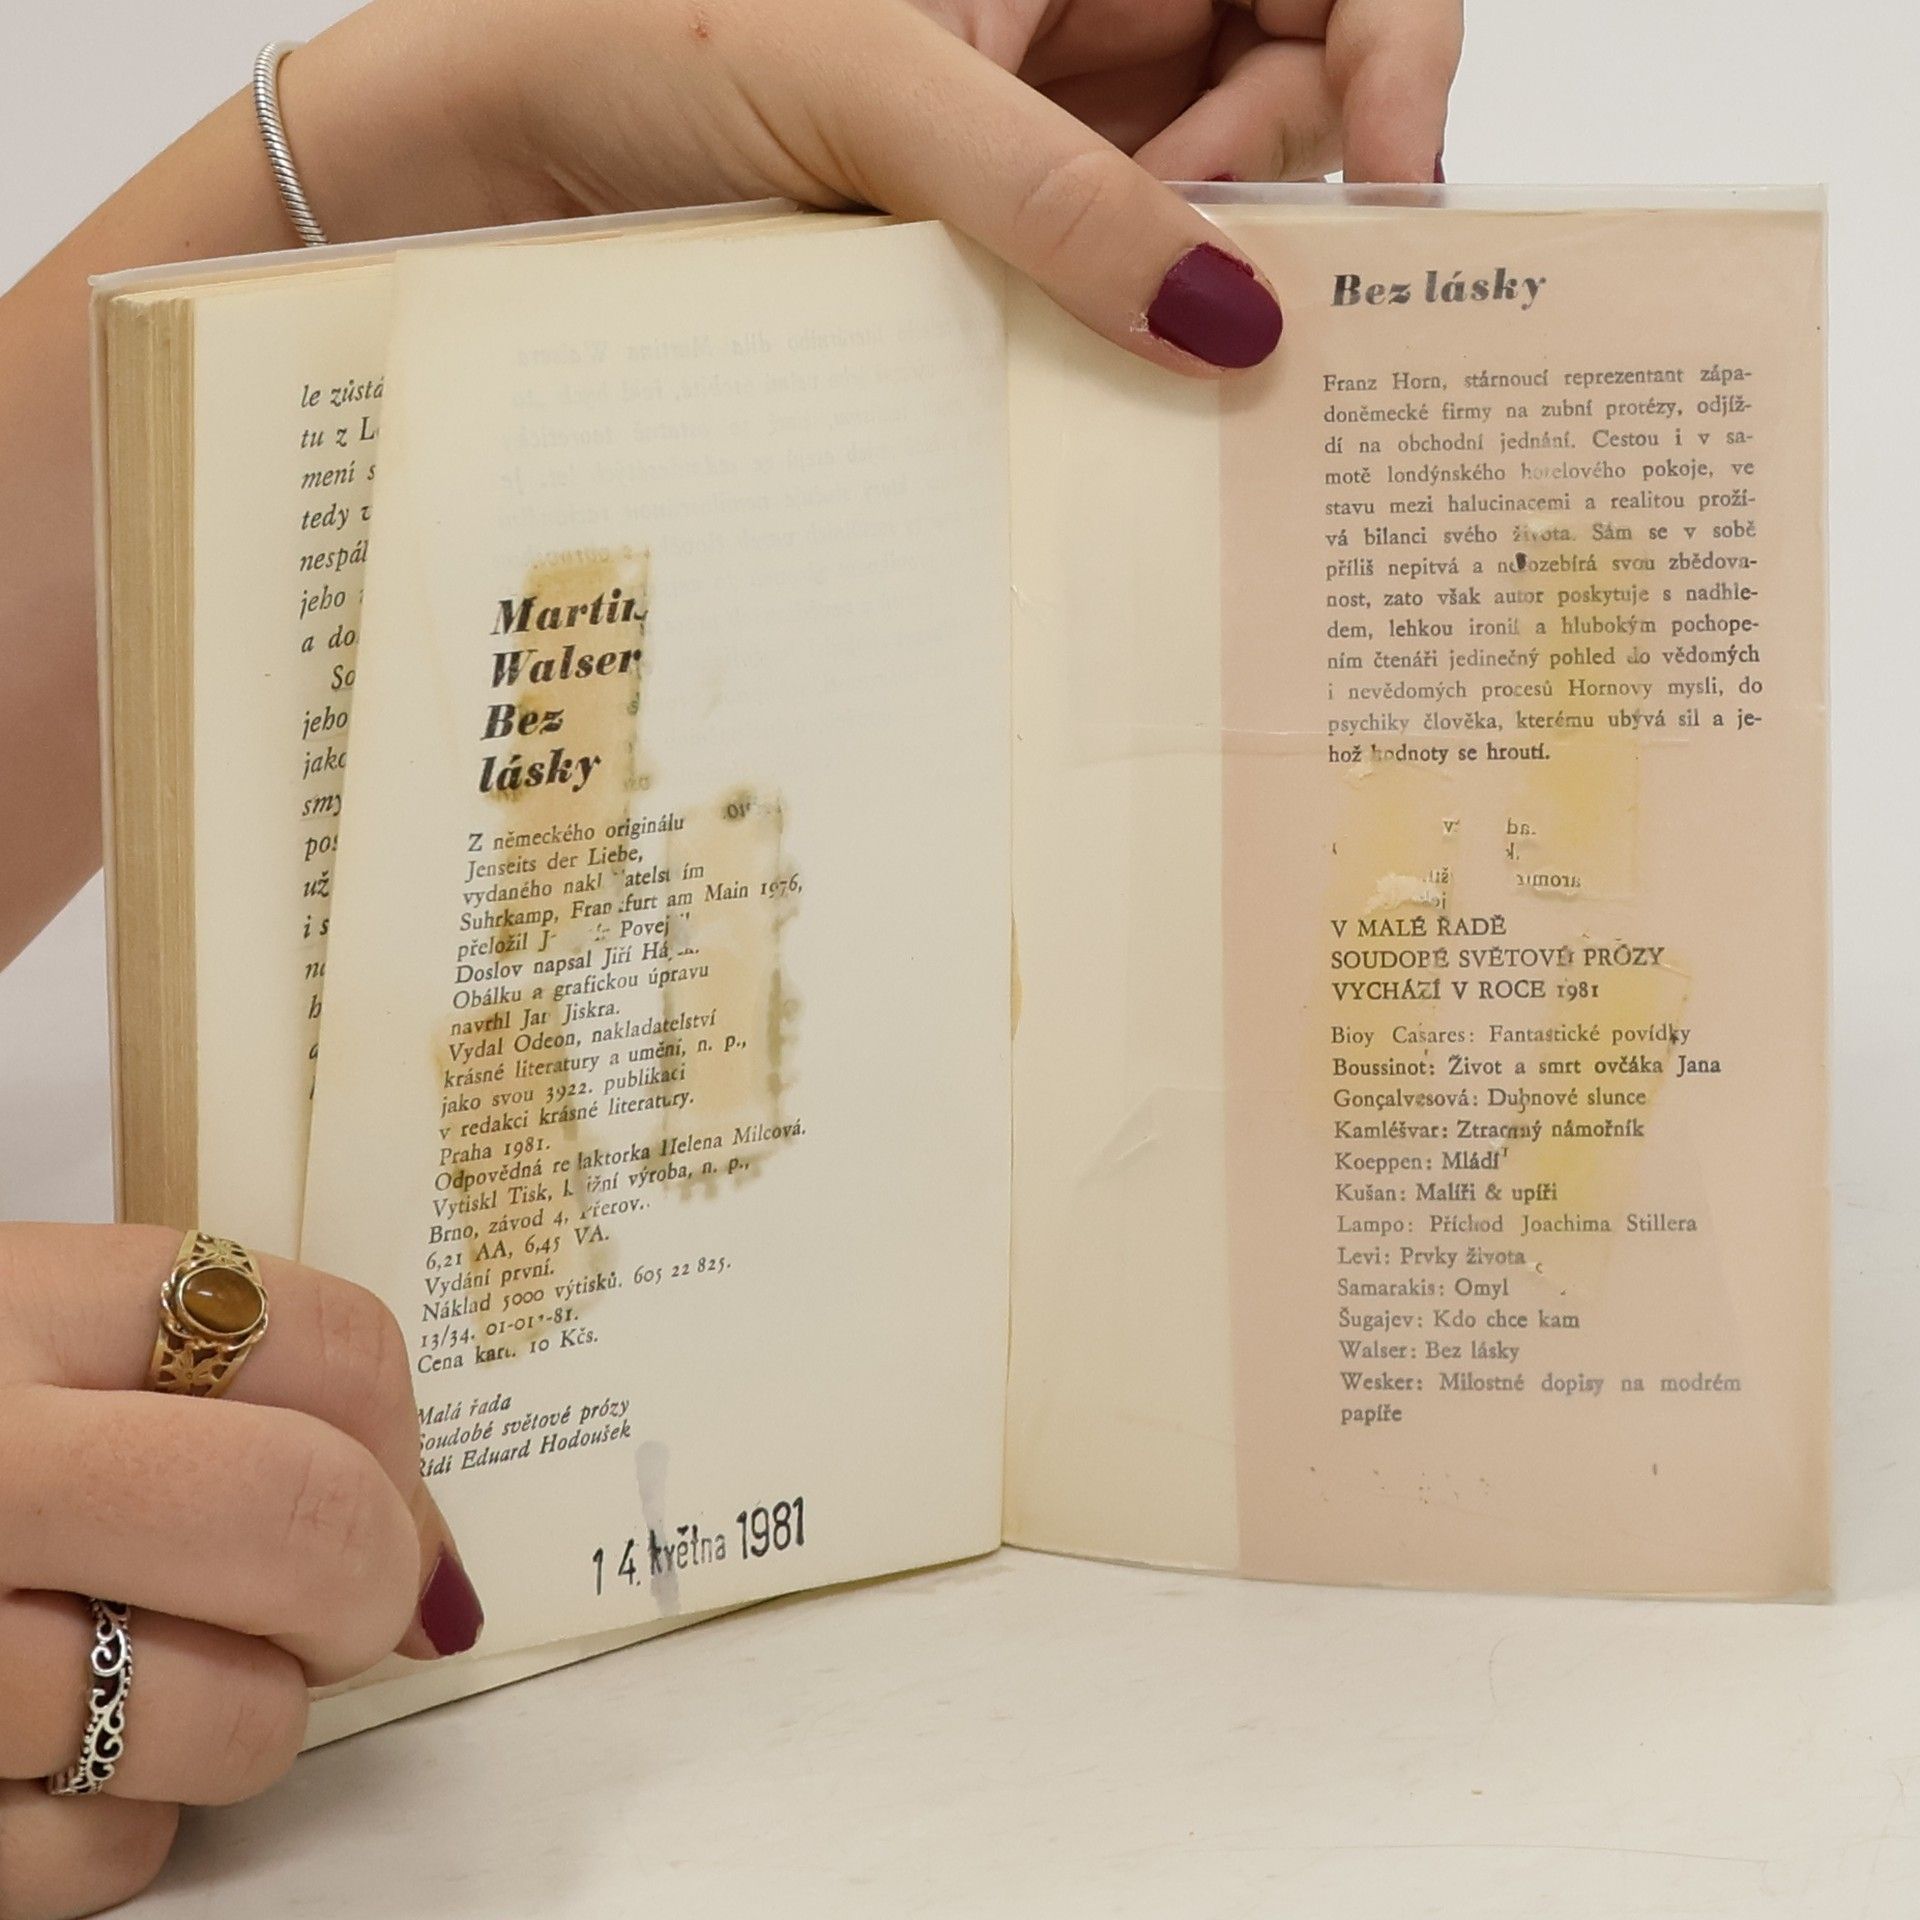 le zůstá
tu z
mení s
tedy v
nespál
jeho
a do
So
jeho
jako
smy
pos
už
i s
Martin
Walser
Bez
lásky
Z německého originálu
Jenseits der Liebe,
vydaného
Suhrkamp, Frankfurt am Main 1976,
přeložil
Doslov napsal Jiří
Obálku a grafickou úpravu
navrhl Jan Jiskra.
Vydal Odeon, nakladatelství
krásné literatury a umění, n. p.,
jako svou 3922. publikaci
v redakci krásné literatury.
Praha 1981.
Odpovědná redaktorka Helena Milcová.
Vytiskl Tisk, knižní výroba, n. p.,
Brno, závod 4, Přerov.
6,21 AA, 6,45 VA.
Vydání první.
Náklad 5000 výtisků. 605 22 825.
13/34.
Cena kart. 10 Kčs.
Malá řada
Soudobé světové prózy
Řídí Eduard Hodoušek
14. května 1981
Bez lásky
Franz Horn, stárnoucí reprezentant zápa-
doněmecké firmy na zubní protézy, odjíž-
dí na obchodní jednání. Cestou i v sa-
motě londýnského hotelového pokoje, ve
stavu mezi halucinacemi a realitou proží-
vá bilanci svého života. Sám se v sobě
příliš nepitvá a nerozebírá svou zbědova-
nost, zato však autor poskytuje s nadhle-
dem, lehkou ironií a hlubokým pochope-
ním čtenáři jedinečný pohled do vědomých
i nevědomých procesů Hornovy mysli, do
psychiky člověka, kterému ubývá sil a je-
hož hodnoty se hroutí.
V MALÉ ŘADĚ
SOUDOBÉ SVĚTOVÉ PRÓZY
VYCHÁZÍ V ROCE 1981
Bioy Casares: Fantastické povídky
Boussinot: Život a smrt ovčáka Jana
Gonçalvesová: Dubnové slunce
Kamléšvar: Ztracený námořník
Koeppen: Mládí
Kušan: Malíři & upíři
Lampo: Příchod Joachima Stillera
Levi: Prvky života
Samarakis: Omyl
Šugajev: Kdo chce kam
Walser: Bez lásky
Wesker: Milostné dopisy na modrém
papíře